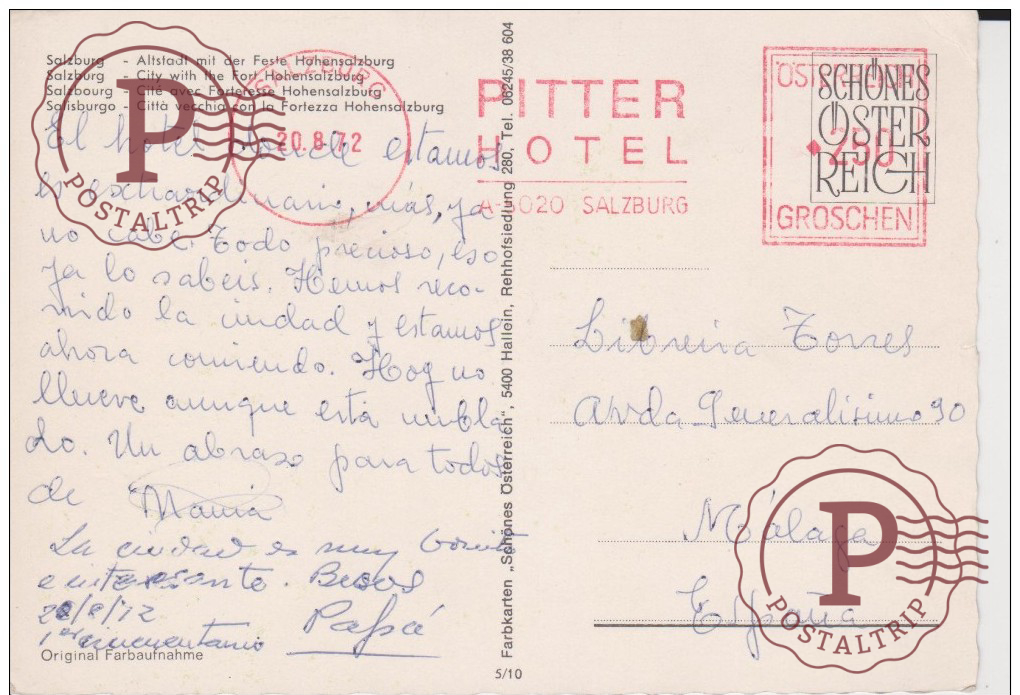 Salzburg - Altstadt mit der Feste Hohensalzburg
Salzburg - City with the Fort Hohensalzburg
Salzbourg - Cité avec Forteresse Hohensalzburg
Salisburgo - Città vecchia con la Fortezza Hohensalzburg
El hotel donde estamos
es extraordinario, más, ya
no cabe. Todo precioso, eso
ya lo sabeis. Hemos reco-
rrido la ciudad y estamos
ahora comiendo. Hoy no
llueve aunque está nubla
do. Un abrazo para todos
de María
La ciudad es muy bonita
e interesante. Besos
Papá
Original Farbaufnahme
SALZBURG
20.8.72
PITTER
HOTEL
A-5020 SALZBURG
250
GROSCHEN
SCHÖNES
ÖSTER
REICH
Farbkarten „Schönes Österreich", 5400 Hallein, Rehhofsiedlung 280, Tel. 06245/38 604
5/10
Librería Torres
Avda Generalisimo 90
Málaga
España
P
POSTALTRIP
P
POSTALTRIP